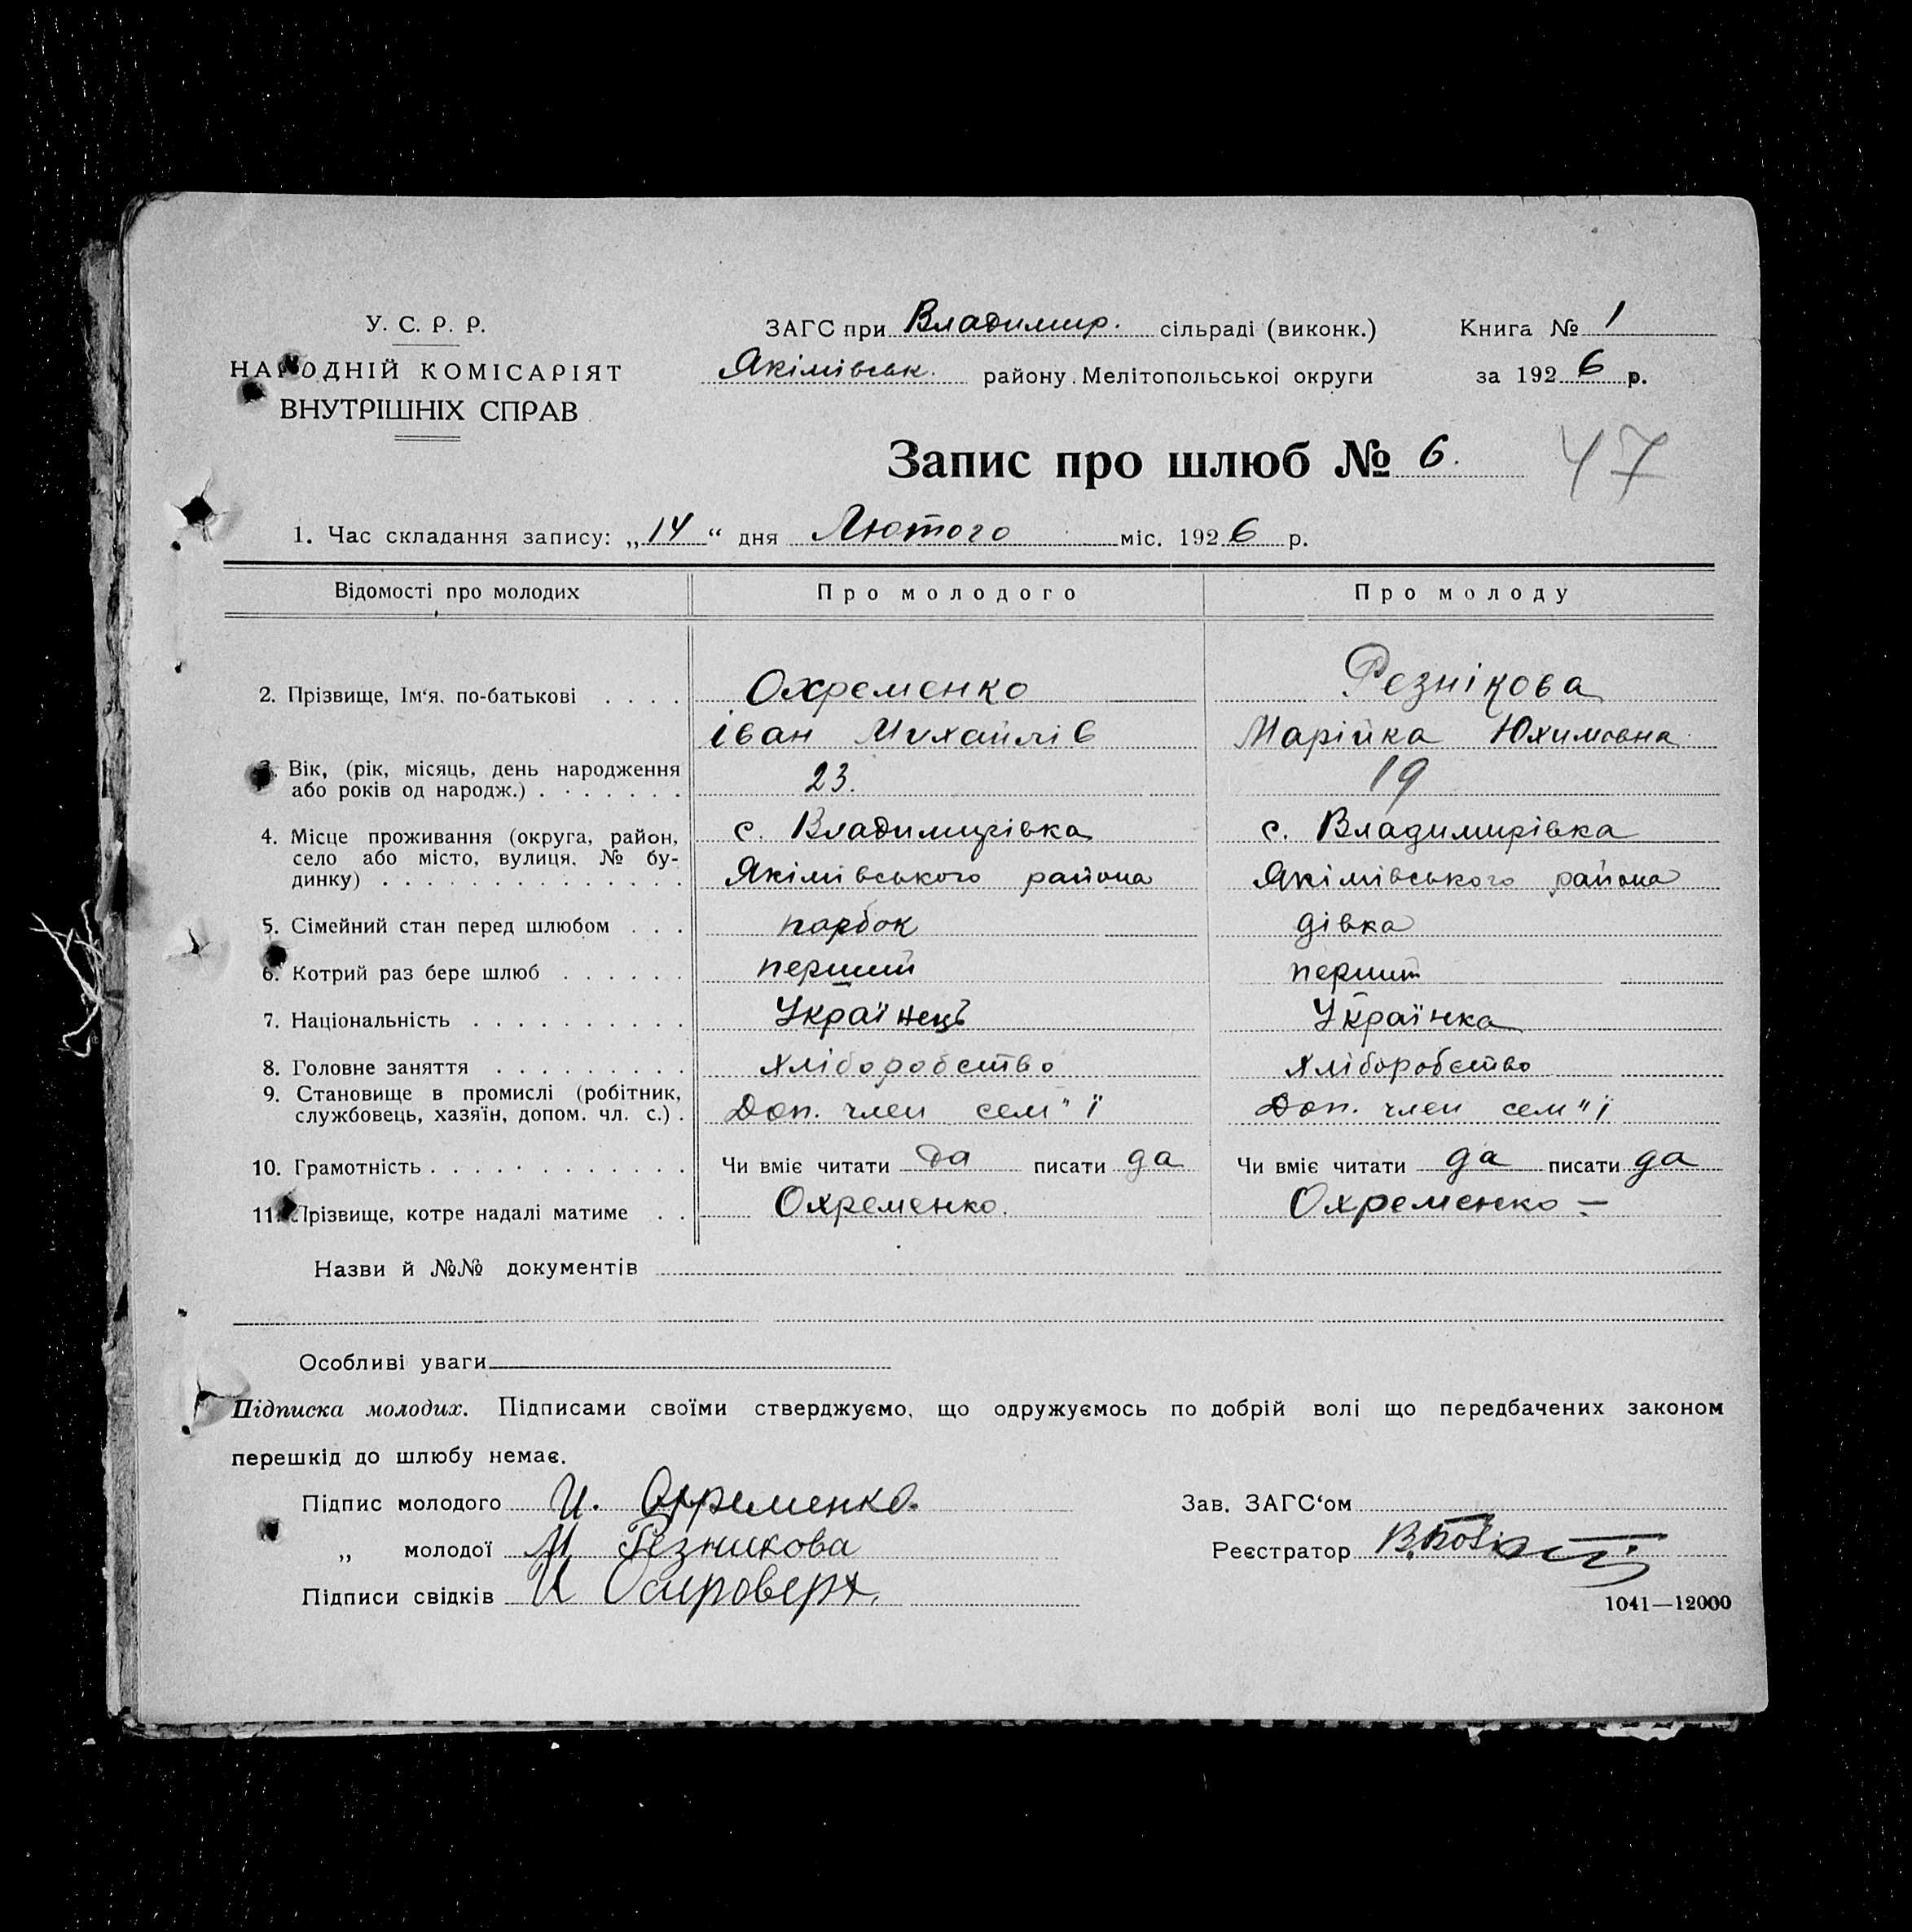 У. С. Р. Р.
НАРОДНІЙ КОМІСАРІЯТ
ВНУТРІШНІХ СПРАВ
ЗАГС при Владимир. сільраді (виконк.)
Якімівськ. району Мелітопольської округи
Книга № 1
за 1926 р.
Запис про шлюб № 6.
47
1. Час складання запису: „14“ дня Лютого міс. 1926 р.
Відомості про молодих Про молодого Про молоду
2. Прізвище, Ім‘я, по-батькові . . . . Охременко Резнікова
іван Михайлів Марійка Юхимовна
3. Вік, (рік, місяць, день народження
або років од народж.) . . . . . . . 23. 19
4. Місце проживання (округа, район, с. Владимирівка с. Владимирівка
село або місто, вулиця, № бу-
динку) . . . . . . . . . . . . . . Якімівського района Якімівського района
5. Сімейний стан перед шлюбом . . . парубок дівка
6. Котрий раз бере шлюб . . . . . . перший перший
7. Національність . . . . . . . . . . Українець Українка
8. Головне заняття . . . . . . . . . Хліборобство Хліборобство
9. Становище в промислі (робітник,
службовець, хазяїн, допом. чл. с.) . Доп. член сем"ї Доп. член сем"ї
10. Грамотність . . . . . . . . . . . . Чи вміє читати да писати да Чи вміє читати да писати да
11. Прізвище, котре надалі матиме . . Охременко. Охременко =
Назви й №№ документів
Особливі уваги
Підписка молодих. Підписами своїми стверджуємо, що одружуємось по добрій волі що передбачених законом
перешкід до шлюбу немає.
Підпис молодого И. Охременко.
„ молодої М Резникова
Підписи свідків И Островерх.
Зав. ЗАГС‘ом
Реєстратор
1041—12000